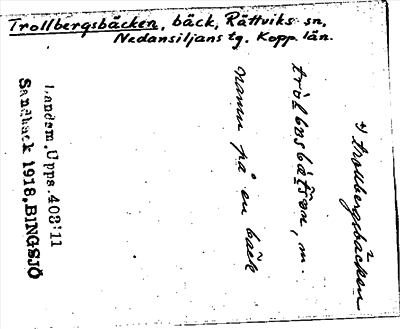 Trollbergsbäcken, bäck, Rättviks sn,
Nedansiljans tg. Kopp. län.
*) Trollbergsbäcken
namn på en bäck
Landsm. Upps. 403:11
Sandback 1918. BINGSJÖ